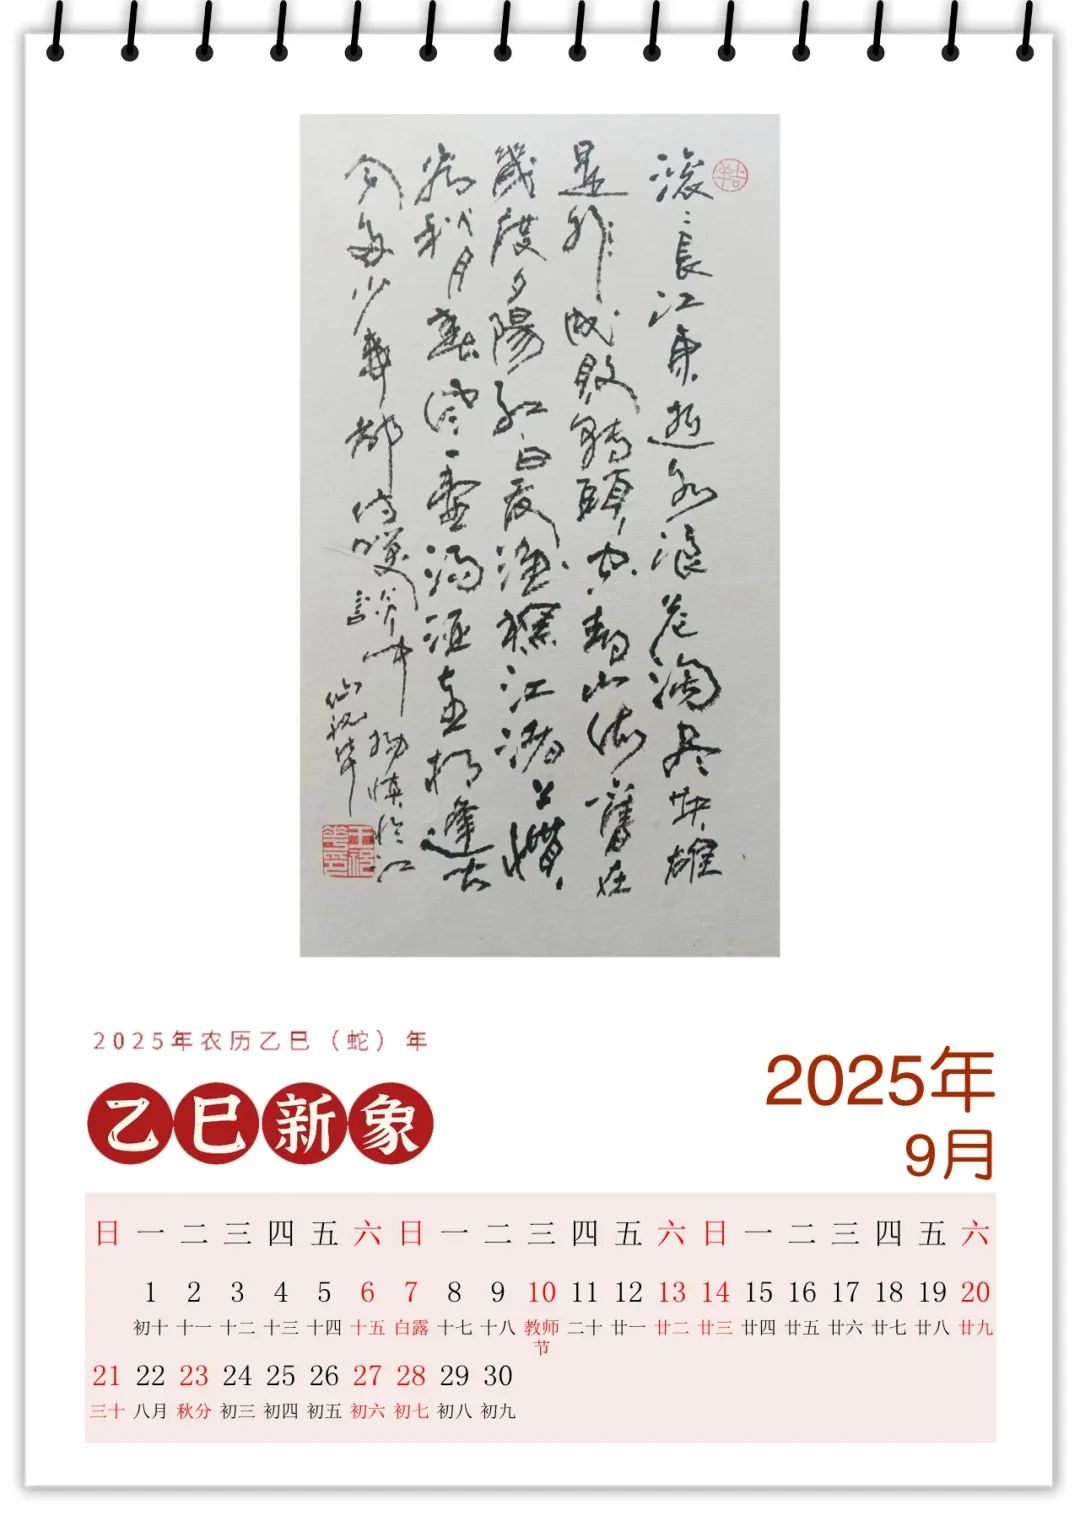 滚〻長江東逝水浪花淘尽英雄
是非成敗轉頭空青山依舊在
幾度夕陽紅白发漁樵江渚上慣
看秋月春风一壺濁酒喜相逢古
今多少事都付笑談中杨慎临江
仙祝华
王祝華印
2025年农历乙巳（蛇）年
乙巳新象
2025年
9月
日 一 二 三 四 五 六 日 一 二 三 四 五 六 日 一 二 三 四 五 六
1 2 3 4 5 6 7 8 9 10 11 12 13 14 15 16 17 18 19 20
初十 十一 十二 十三 十四 十五 白露 十七 十八 教师节 二十 廿一 廿二 廿三 廿四 廿五 廿六 廿七 廿八 廿九
21 22 23 24 25 26 27 28 29 30
三十 八月 秋分 初三 初四 初五 初六 初七 初八 初九